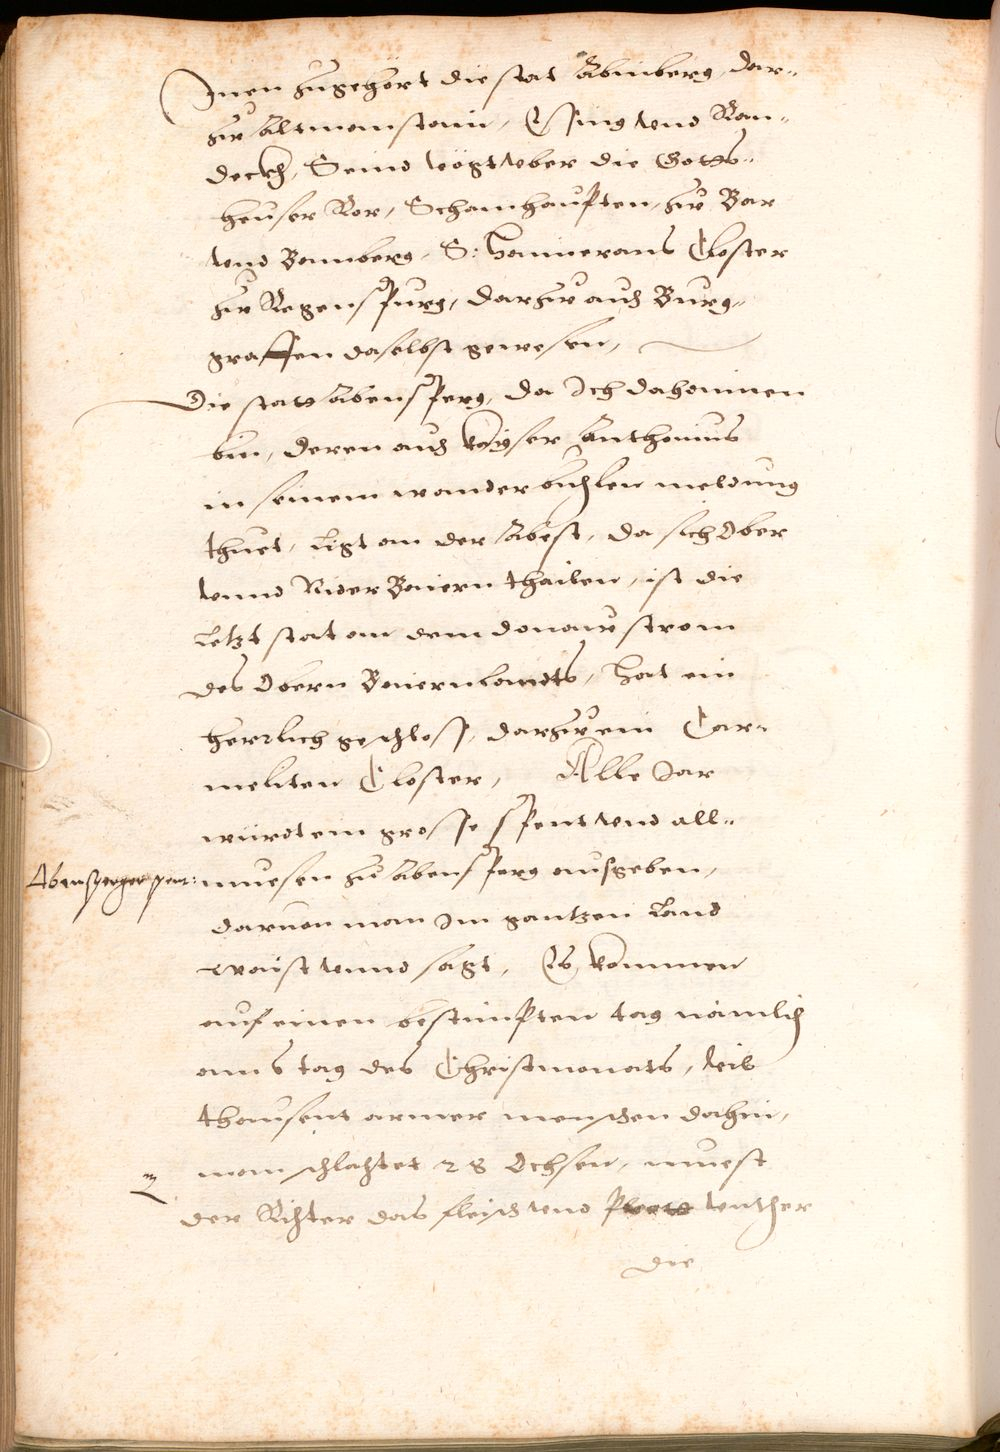 Inen zugehört die stat Abinberg, dar-
zu Altmonstain, Esing vnd Ran-
deckh, Seind vögt vber die Gotts-
heuser Ror, Schamhaupten, zu Bar
vnd Bamberg, S: Haimerans Closter
zu Regenspurg, darzu auch Burg-
graffen daselbst gewesen,
Die statt Abensperg, da Ich dahaimen
bin, deren auch kayser Anthonius
in seinem wanderbuchlen meldung
thuet, ligt an der Abest, da sich Ober
vnnd Nider Baiern thailen, ist die
letzt stat an dem Donaw strom
des Obern Baiernlandts, hat ein
herrlich geschlosz, darzu ein Car-
meliten Closter, Alle Jar
würdt ein grosse spent vnd all-
Abensperger spent: muesen zu Abensperg ausgeben,
daruon man Im gantzen Land
waist vnnd sagt, Es kommen
auf einen bestimpten tag nämlich
am 6 tag des Christmonats, vil
thausent armer menschen dahin,
man schlachtet 28 Ochsen, muest
der Richter das fleisch vnd vnther
die